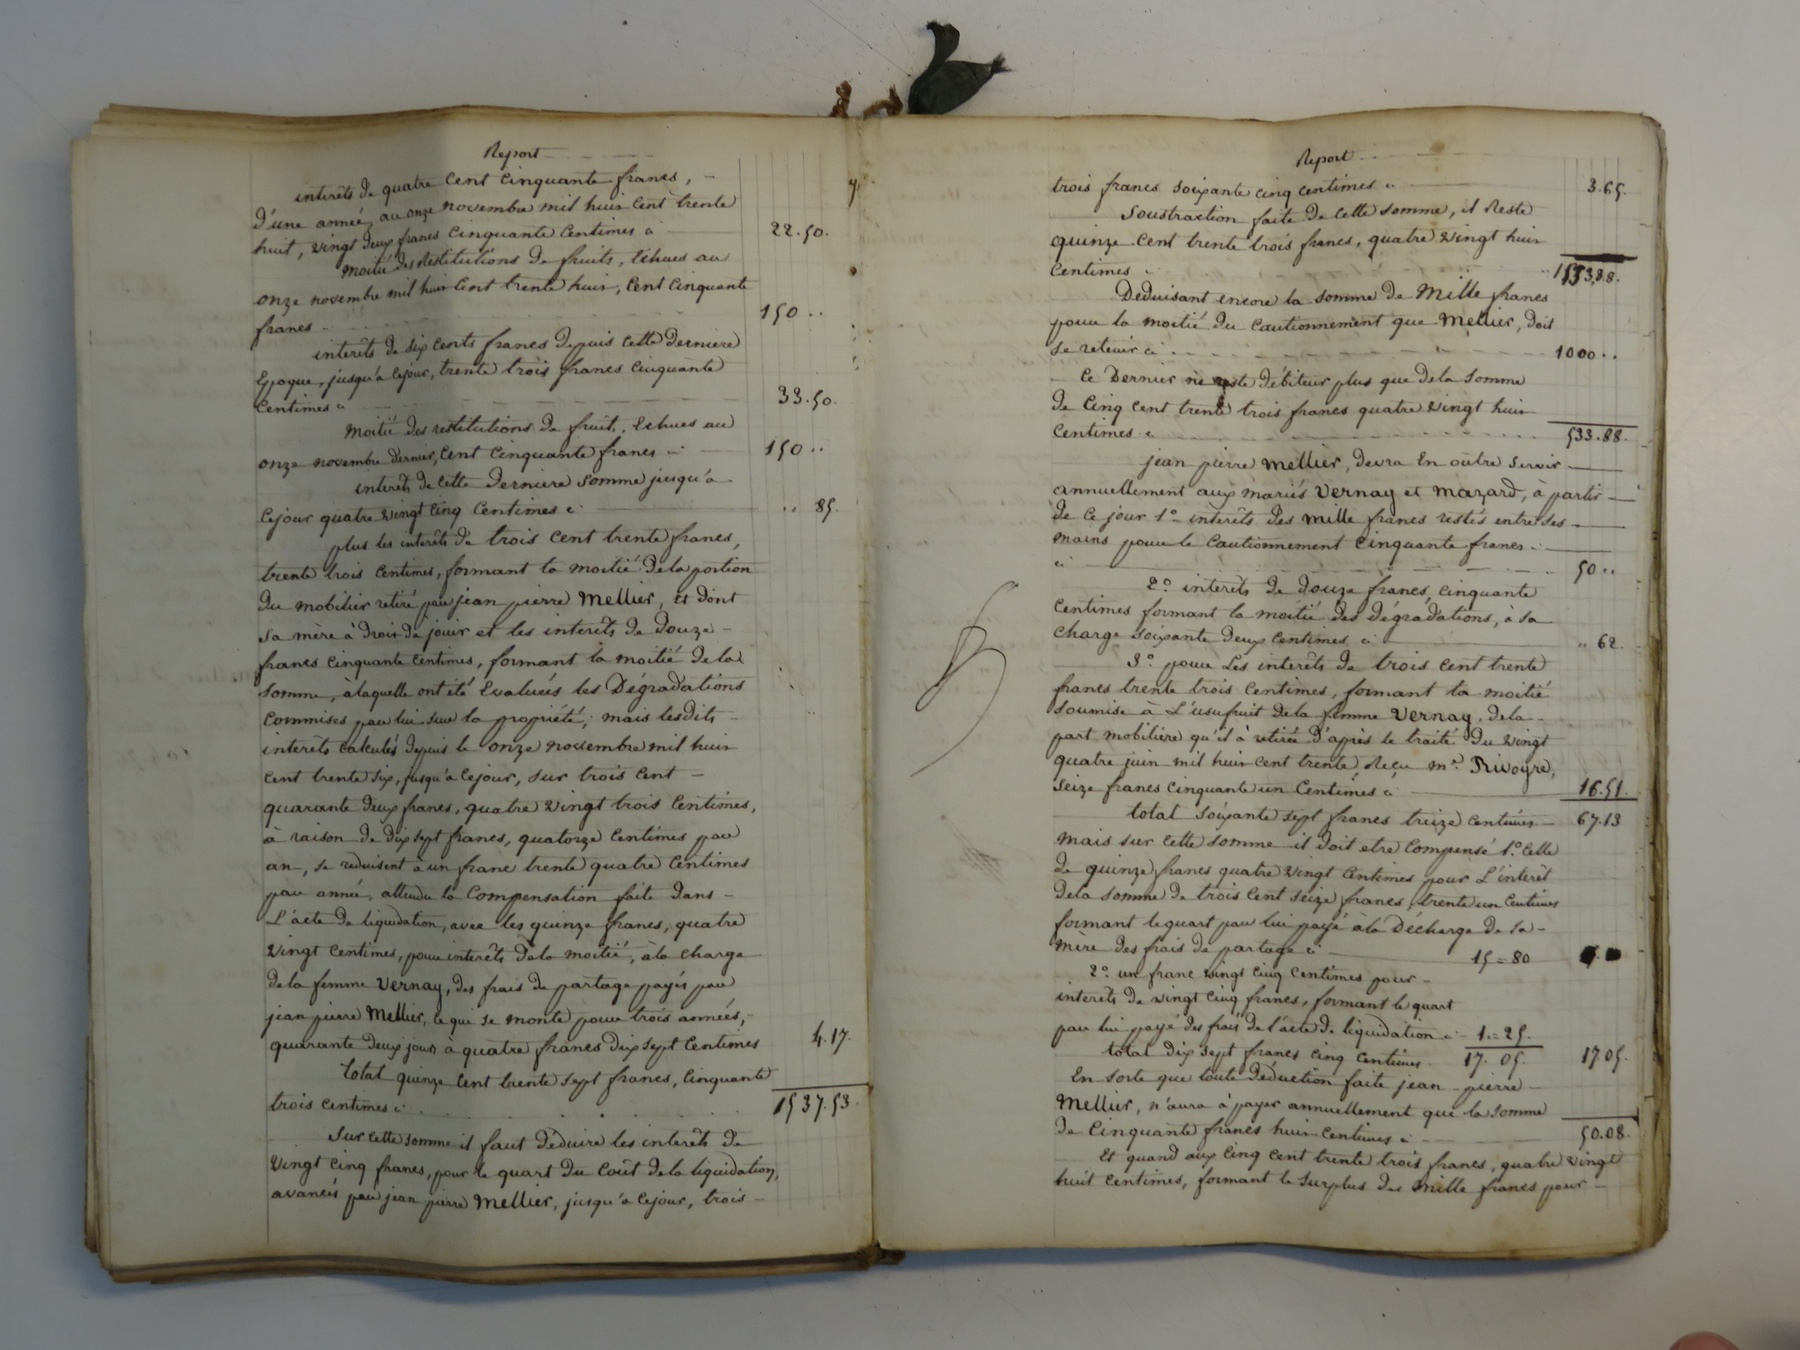 Report
intérêts de quatre Cent Cinquante francs,
d'une année, au onze novembre mil huit Cent trente
huit, vingt deux francs Cinquante Centimes ci 22.50.
Moitié des Restitutions de fruits, Echues au
onze novembre mil huit Cent trente huit, Cent Cinquante
francs 150 ..
intérêts de six Cents francs depuis cette derniere
Epoque, jusqu'à cejour, trente trois francs Cinquante
Centimes ci 33.50.
Moitié des restitutions de fruits, Echues au
onze novembre dernier, Cent Cinquante francs ci 150 ..
intérêts de cette derniere somme jusqu'à
cejour quatre vingt Cinq Centimes ci .. 85.
plus les intérêts de trois Cent trente francs,
trente trois Centimes, formant la moitié dela portion
du mobilier retiré par jean pierre Mellier, et dont
sa mère à droit de jouir et les intérêts de douze
francs Cinquante Centimes, formant la moitié dela
somme, àlaquelle ont été Evalués les Dégradations
Commises par lui sur la propriété; mais lesdits
intérêts calculés depuis le onze novembre mil huit
Cent trente six, jusqu'à cejour, sur trois Cent
quarante deux francs, quatre vingt trois Centimes,
à raison de dix sept francs, quatorze Centimes par
an, se réduisent à un franc trente quatre Centimes
par année, attendu la Compensation faite dans
L'acte de liquidation, avec les quinze francs, quatre
vingt Centimes, pour intérêts dela moitié, àla charge
dela femme Vernay, des frais de partage payés par
jean pierre Mellier, ce qui se monte pour trois années,
quarante deux jours à quatre francs dix sept Centimes 4.17.
Total quinze Cent trente sept francs, Cinquante
trois Centimes ci 1537.53.
Sur cette somme il faut déduire les intérêts de
Vingt Cinq francs, pour le quart du Coût dela liquidation,
avancés par jean pierre Mellier, jusqu'à cejour, trois
Report
trois francs soixante cinq centimes ci 3.65.
Soustraction faite de cette somme, il Reste
quinze Cent trente trois francs, quatre vingt huit
Centimes ci 1533.88.
Déduisant encore la somme de Mille francs
pour la moitié du Cautionnement que Mellier, doit
se retenir ci 1000 ..
Ce Dernier ne reste débiteur plus que dela Somme
de Cinq cent trente trois francs quatre vingt huit
Centimes ci 533.88.
jean pierre Mellier, devra En outre servir
annuellement aux mariés Vernay et Mazard, à partir
de ce jour 1° intérêts des Mille francs restés entre ses
mains pour le Cautionnement Cinquante francs ci
ci 50 ..
2° intérêts de douze francs, cinquante
Centimes formant la moitié des dégradations, à sa
charge soixante deux Centimes ci .. 62.
3° pour Les intérêts de trois cent trente
francs trente trois Centimes, formant la moitié
soumise à L'usufruit dela femme Vernay, dela
part mobilière qu'il à retirée d'après le traité du vingt
quatre juin mil huit Cent trente Reçu me. Rivoyre,
seize francs Cinquante un Centimes ci 16.51.
total Soixante sept francs treize Centimes 67.13
Mais sur cette somme il doit etre Compensé 1° Celle
de quinze francs quatre vingt Centimes pour L'intérêt
dela somme de trois Cent seize francs, trente un Centimes
formant le quart par lui payé àla Décharge de sa
mère des frais de partage ci 15=80
2° un franc vingt Cinq Centimes pour
intérêts de vingt Cinq francs, formant le quart
par lui payé des frais de l'acte de liquidation ci 1.=25.
total dix sept francs cinq Centimes 17. 05. 17.05.
En sorte que toute déduction faite jean pierre
Mellier, n'aura à payer annuellement que la somme
de Cinquante francs huit Centimes ci 50.08.
Et quand aux Cinq Cent trente trois francs, quatre vingt
huit Centimes, formant le surplus des Mille francs pour